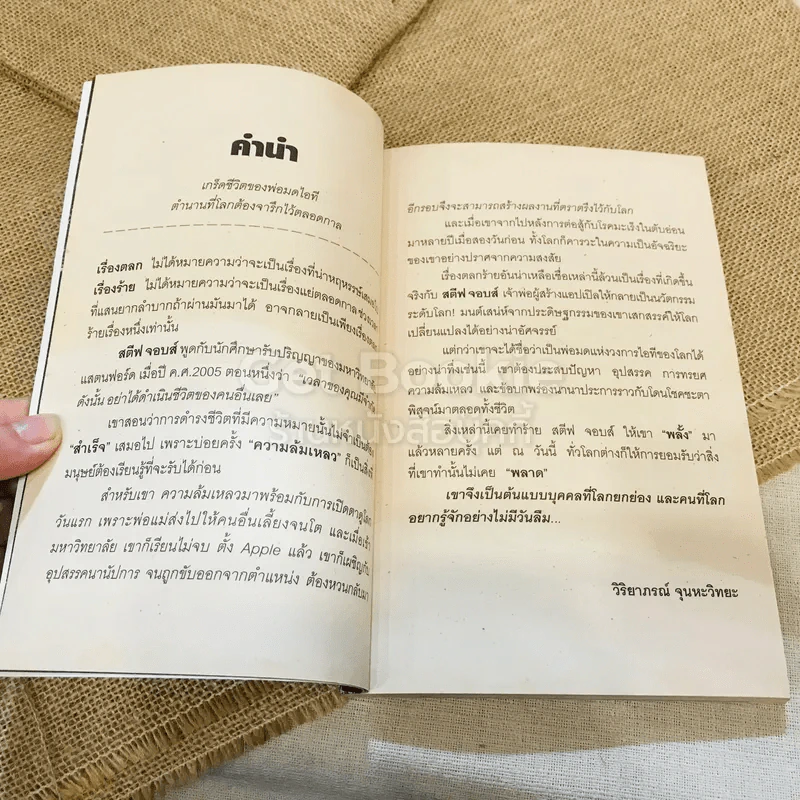 คำนำ
เกร็ดชีวิตของพ่อมดไอที
ตำนานที่โลกต้องจารึกไว้ตลอดกาล
เรื่องตลก ไม่ได้หมายความว่าจะเป็นเรื่องที่น่าหฤหรรษ์เสมอไป
เรื่องร้าย ไม่ได้หมายความว่าจะเป็นเรื่องแย่ตลอดกาล
ที่แสนยากลำบากถ้าผ่านมันมาได้ อาจกลายเป็นเพียงเรื่องตลก
ร้ายเรื่องหนึ่งเท่านั้น
สตีฟ จอบส์ พูดกับนักศึกษารับปริญญาของมหาวิทยาลัย
แสตนฟอร์ด เมื่อปี ค.ศ.2005 ตอนหนึ่งว่า "เวลาของคุณมีจำกัด
ดังนั้น อย่าได้ดำเนินชีวิตของคนอื่นเลย"
เขาสอนว่าการดำรงชีวิตที่มีความหมายนั้นไม่จำเป็นต้อง
"สำเร็จ" เสมอไป เพราะบ่อยครั้ง "ความล้มเหลว" ก็เป็นสิ่งที่
มนุษย์ต้องเรียนรู้ที่จะรับได้ก่อน
สำหรับเขา ความล้มเหลวมาพร้อมกับการเปิดตาดูโลก
วันแรก เพราะพ่อแม่ส่งไปให้คนอื่นเลี้ยงจนโต และเมื่อเข้า
มหาวิทยาลัย เขาก็เรียนไม่จบ ตั้ง Apple แล้ว เขาก็เผชิญกับ
อุปสรรคนานัปการ จนถูกขับออกจากตำแหน่ง ต้องหวนกลับมา
อีกรอบจึงจะสามารถสร้างผลงานที่ตราตรึงไว้กับโลก
และเมื่อเขาจากไปหลังการต่อสู้กับโรคมะเร็งในตับอ่อน
มาหลายปีเมื่อสองวันก่อน ทั้งโลกก็คารวะในความเป็นอัจฉริยะ
ของเขาอย่างปราศจากความสงสัย
เรื่องตลกร้ายอันน่าเหลือเชื่อเหล่านี้ล้วนเป็นเรื่องที่เกิดขึ้น
จริงกับ สตีฟ จอบส์ เจ้าพ่อผู้สร้างแอปเปิลให้กลายเป็นนวัตกรรม
ระดับโลก! มนต์เสน่ห์จากประดิษฐกรรมของเขาเสกสรรค์ให้โลก
เปลี่ยนแปลงได้อย่างน่าอัศจรรย์
แต่กว่าเขาจะได้ชื่อว่าเป็นพ่อมดแห่งวงการไอทีของโลกได้
อย่างน่าทึ่งเช่นนี้ เขาต้องประสบปัญหา อุปสรรค การทรยศ
ความล้มเหลว และข้อบกพร่องนานาประการราวกับโดนโชคชะตา
พิสูจน์มาตลอดทั้งชีวิต
สิ่งเหล่านี้เคยทำร้าย สตีฟ จอบส์ ให้เขา "พลั้ง" มา
แล้วหลายครั้ง แต่ ณ วันนี้ ทั่วโลกต่างก็ให้การยอมรับว่าสิ่ง
ที่เขาทำนั้นไม่เคย "พลาด"
เขาจึงเป็นต้นแบบบุคคลที่โลกยกย่อง และคนที่โลก
อยากรู้จักอย่างไม่มีวันลืม...
วิริยาภรณ์ จุนหะวิทยะ